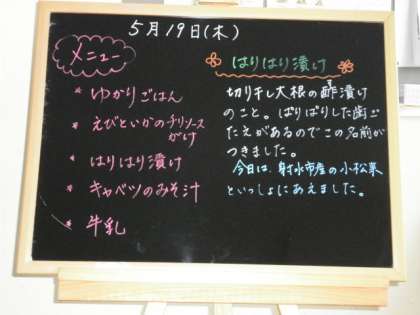 5月19日(木)
メニュー
* ゆかりごはん
* えびといかのチリソース
がけ
* はりはり漬け
* キャベツのみそ汁
* 牛乳
はりはり漬け
切り干し大根の酢漬け
のこと。ぱりぱりした歯ご
たえがあるのでこの名前が
つきました。
今日は、射水市産の小松菜
といっしょにあえました。